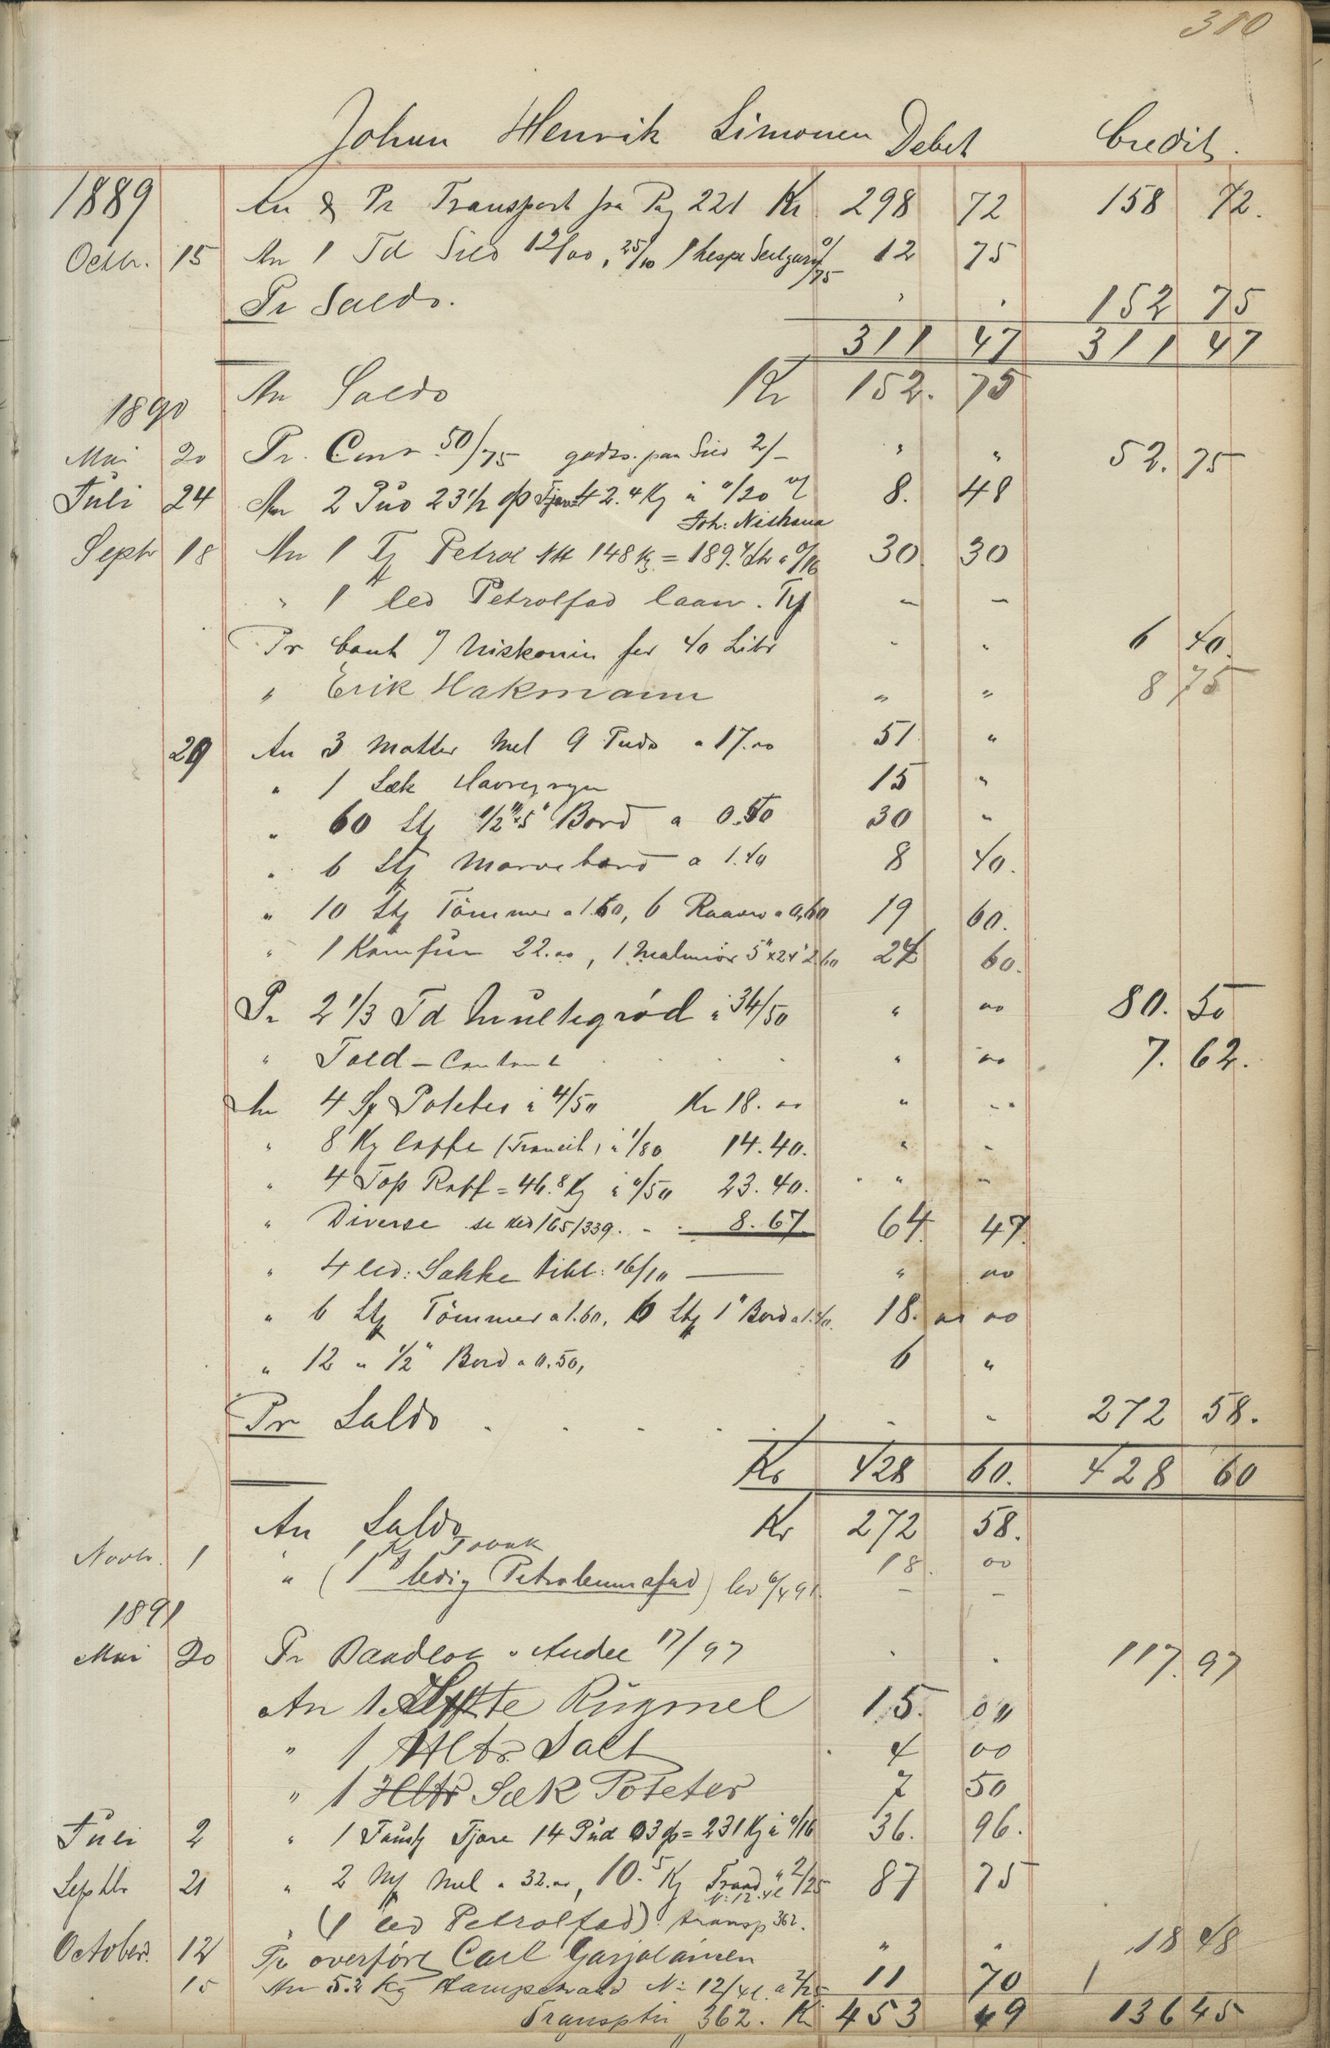 310
Johan Henrik Simonen Debet Credit.
1889 An & Pr Transport fra Pag 221 Kr 298 72 158 72.
Octbr. 15 An 1 Td Sild 12/00, 25/10 1 hespe Seilgarn 0/75 12 75
Pr Saldo. 152 75
311 47 311 47
An Saldo Kr 152. 75
1890
Mai 20 Pr. Cont 50/75 godtg. paa Sild 2/- " " 52. 75
Juli 24 An 2 Pud 23 1/2 Tjære 42.4 Kg à 0/20 8. 48
Joh: Niskana
Septr 18 An 1 Fj Petrol 148 Kg = 189.4 Ltr a 0/16 30. 30
" 1 led Petrolfad laan. - -
Pr Cont Niskonin for 40 Libr - - 6 40.
" Erik Hakmann " " 8 75
29 An 3 Matter Mel 9 Puds a 17.00 51 "
" 1 Sæk Havregryn 15 "
" 60 Stk 1/2"x5" Bord a 0.50 30 "
" 6 Stk bord a 1.40 8 40.
" 10 Stk Tömmer a 1.60, 6 a 0,60 19 60.
" 1 Komfür 22.00, 1 5"x24" 2.60 24 60.
Pr 2 1/3 Td Multegrød à 34/50 " 00 80. 50
" Told - Contant " 00 7. 62.
An 4 Sk Poteter à 4/50 Kr 18. 00 " "
" 8 Kg Caffe (Transit) à 1/80 14.40. " -
" 4 Top Raff = 46.8 Kg à 0/50 23.40. " -
" Diverse se Kld 165/339. 8.67. 64. 47.
" 4 led: Sække 16/10 " 00
" 6 Stk Tömmer a 1.60, 6 Stk 1" Bord a 1.40. 18. 00
" 12 " 1/2" Bord a 0.50, 6 "
Pr Saldo - - 272 58.
Kr 428 60. 428 60
An Saldo Kr 272 58.
Novbr. 1 " 1 Kg 18 00
" (1 ledig Petroleumsfad) lev 6/4 91. - -
1891
Mai 20 Pr 17/97 117. 97
An 1 Rügmel 15. 00
" 1 Hltr. Salt 4 00
" 1 Hltr Sæk Poteter 7 50
Juli 2 " 1 Tjære 14 Pud 03 = 231 Kg à 0/16 36. 96.
Septbr 21 " 2 Mel a 32.00, 10.5 Kg Traad a 2/25 87 75
N: 12.
" (1 led Petrolfad) transp 362.
October 12 Pr overført Carl Garjalainen " " 18 48
15 An 5.2 Kg Hampetraad N: 12/4 a 2/25 11 70
Transptil 362. Kr 453 49 136 45